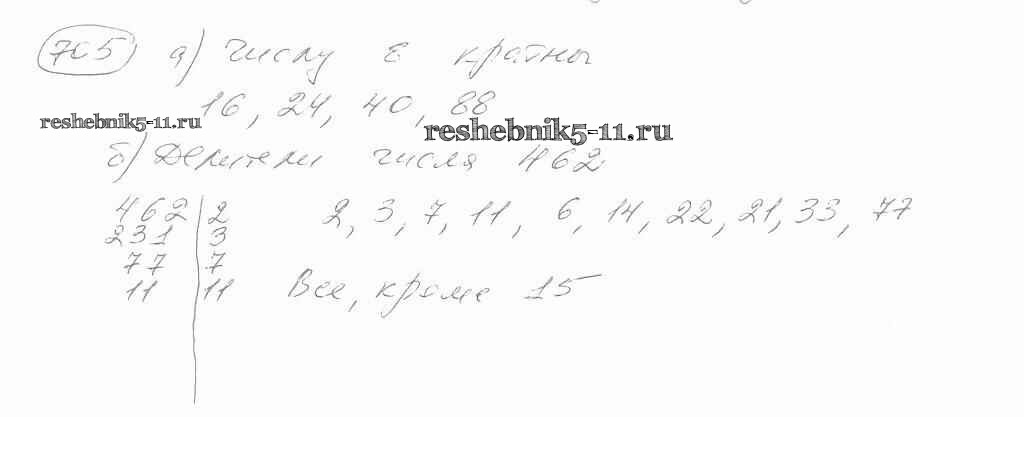 705) а) числу 8 кратны
16, 24, 40, 88
reshebnik5-11.ru
reshebnik5-11.ru
б) Делители числа 462
462 | 2    2, 3, 7, 11, 6, 14, 22, 21, 33, 77
231 | 3
77 | 7
11 | 11    Все, кроме 15